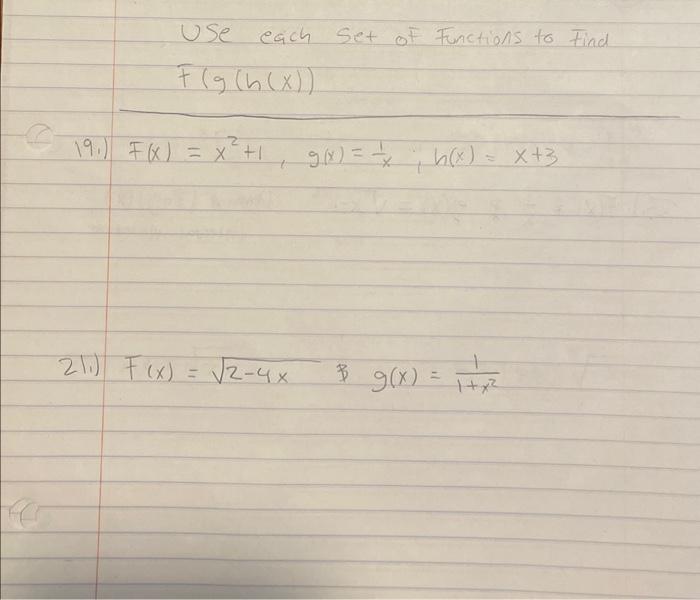 Use each Set of Functions to Find
F(g(h(x))
19.) F(x) = x²+1, g(x) = 1/x ; h(x) = x+3
21.) F(x) = √2-4x & g(x) = 1/1+x²